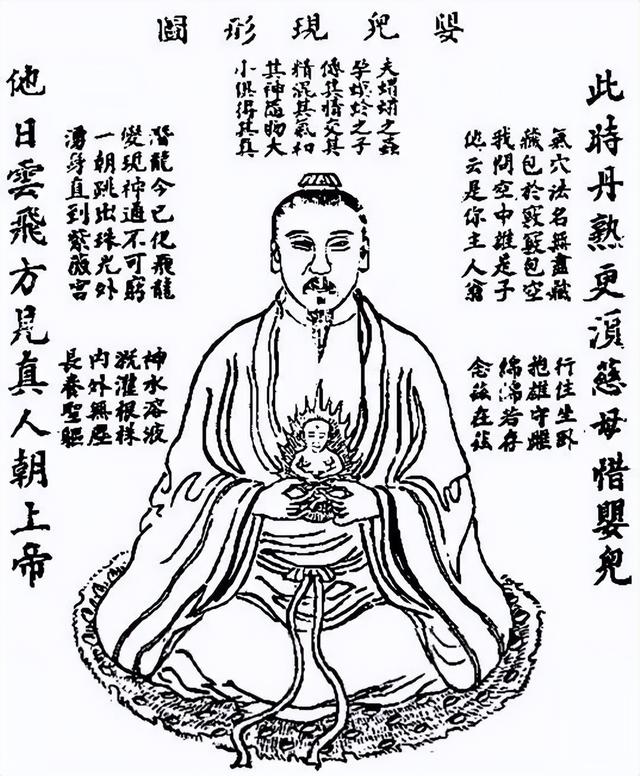 嬰兒現形圖
此時丹熟更須慈母惜嬰兒
氣穴法名無盡藏
藏包於竅竅包空
我問空中誰是子
他云是你主人翁
行住坐臥
抱雄守雌
綿綿若存
念茲在茲
夫之蟲
孕螟蛉之子
傳其情交其
精混其氣和
其神隨物大
小俱得其真
潛龍今已化飛龍
變現神通不可窮
一朝跳出珠光外
湧身直到紫薇宮
神水溶液
澆灌根株
內外無塵
長養聖軀
他日雲飛方見真人朝上帝